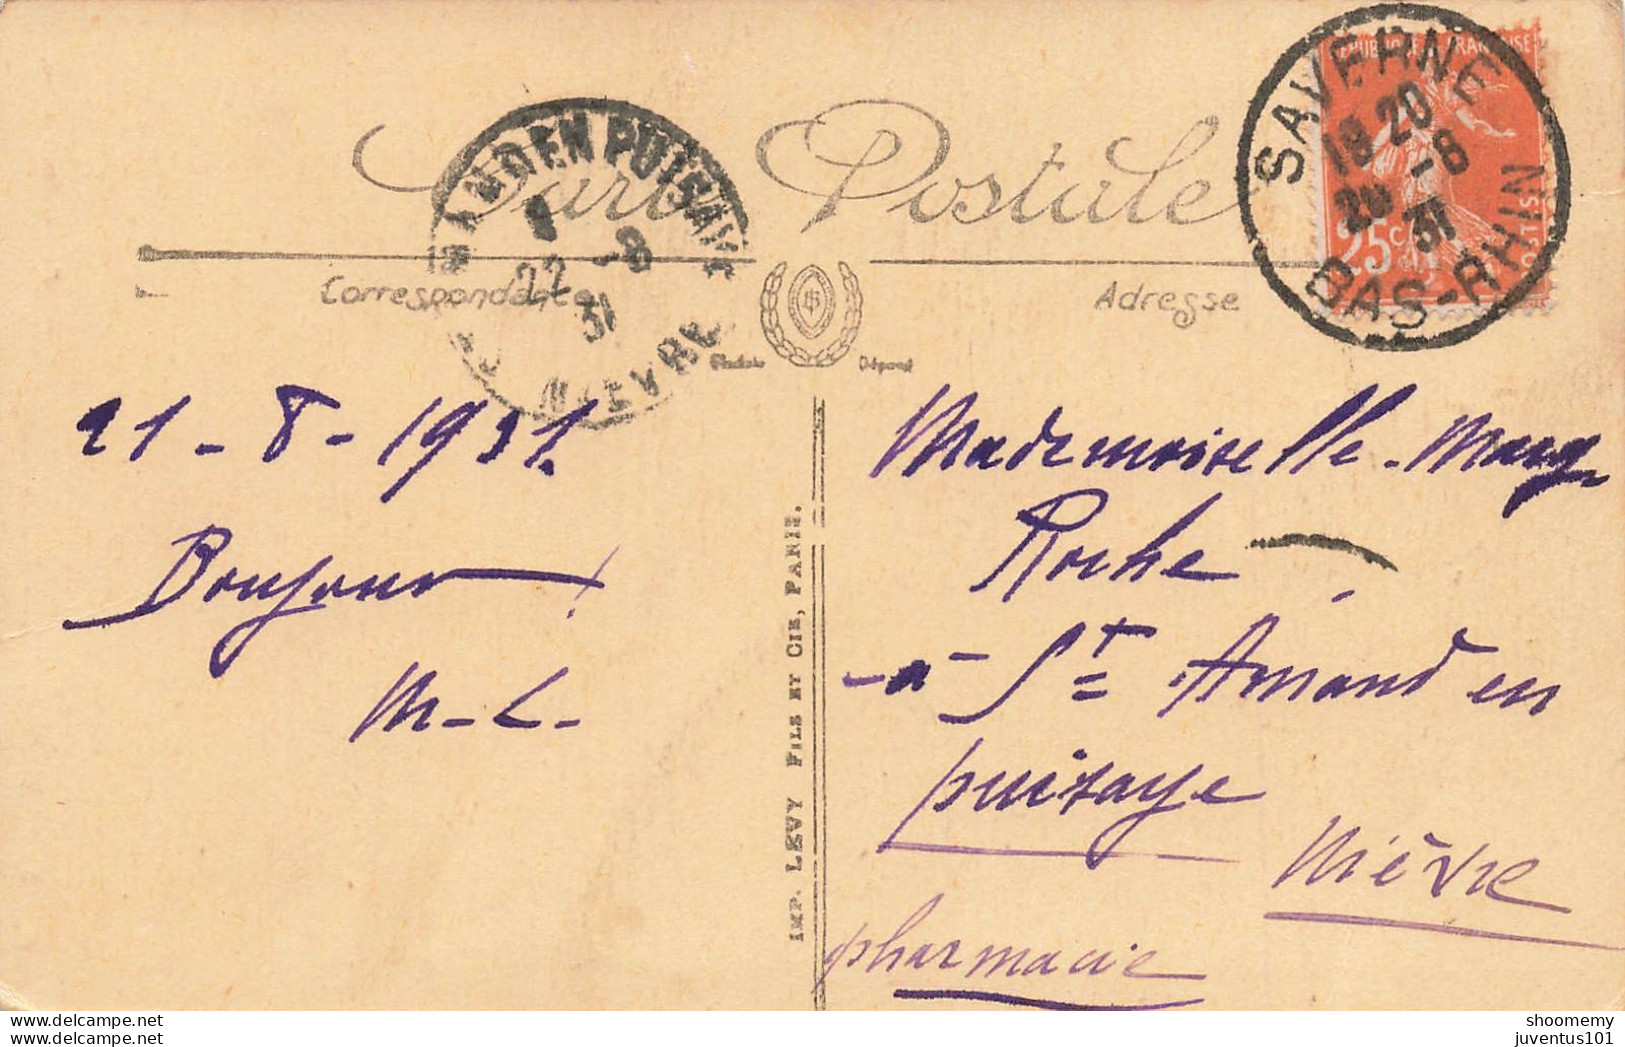 Carte Postale
Correspondance
Adresse
REPUBLIQUE FRANÇAISE
25c
POSTES
SAVERNE
18 20
20 -8
31
BAS-RHIN
AMAND EN PUISAYE
22 -8
31
NIEVRE
Modèle Déposé
21-8-1931.
Bonjour
M-L-
IMP. LEVY FILS ET CIE, PARIS.
Mademoiselle Marg
Roche
-a- St Amand en
puisaye
Nièvre
pharmacie
www.delcampe.net
shoomemy
juventus101